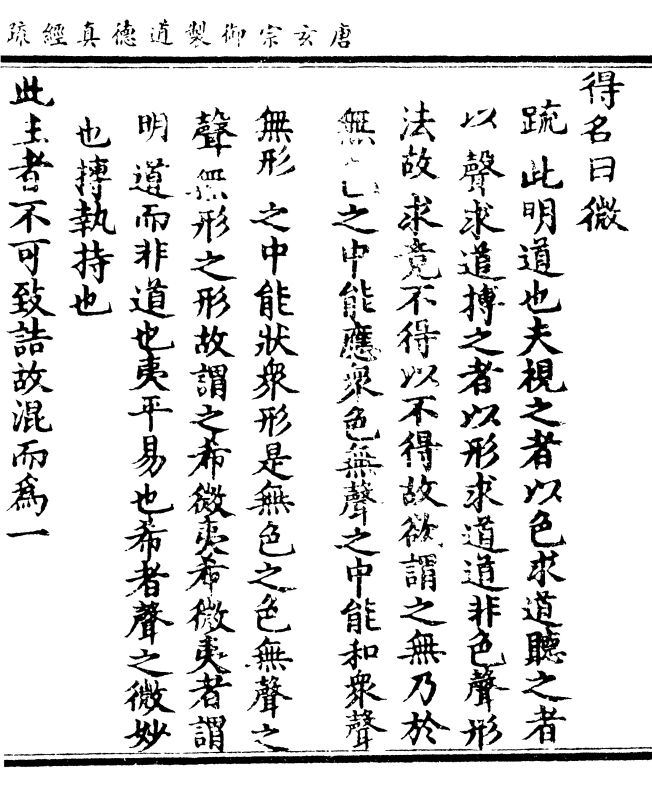 唐玄宗御製道德真經疏
得名曰微
疏此明道也夫視之者以色求道聽之者
以聲求道搏之者以形求道道非色聲形
法故求竟不得以不得故欲謂之無乃於
無色之中能應衆色無聲之中能和衆聲
無形之中能狀衆形是無色之色無聲之
聲無形之形故謂之希微夷希微夷者謂
明道而非道也夷平易也希者聲之微妙
也摶執持也
此三者不可致詰故混而為一